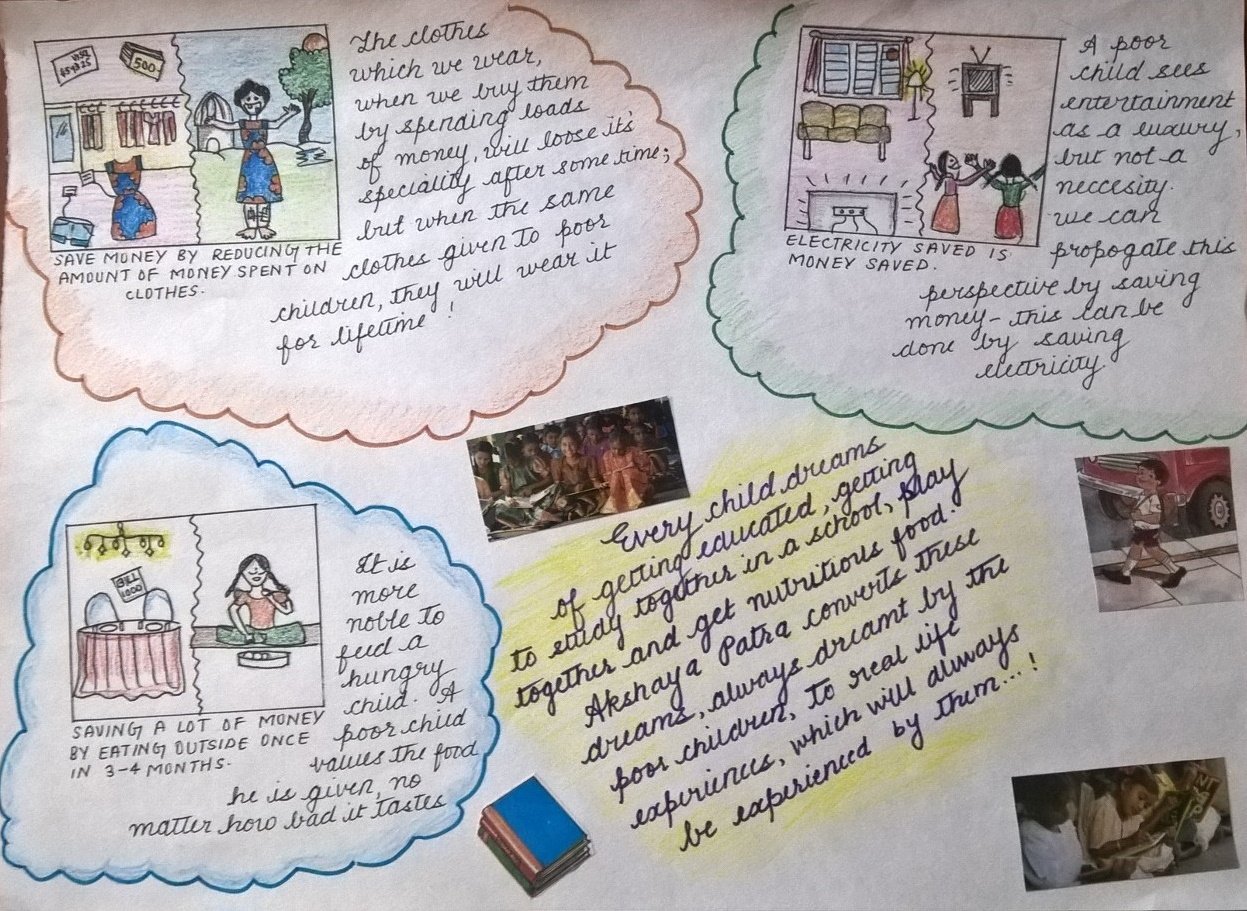 500
The clothes
which we wear,
when we buy them
by spending loads
of money, will loose it's
speciality after some time;
but when the same
clothes given to poor
children, they will wear it
for lifetime !
SAVE MONEY BY REDUCING THE
AMOUNT OF MONEY SPENT ON
CLOTHES.
A poor
child sees
entertainment
as a luxury,
but not a
neccesity.
we can
propogate this
perspective by saving
money - this can be
done by saving
electricity
ELECTRICITY SAVED IS
MONEY SAVED.
BILL
1000
It is
more
noble to
feed a
hungry
child. A
poor child
values the food
he is given, no
matter how bad it tastes
SAVING A LOT OF MONEY
BY EATING OUTSIDE ONCE
IN 3-4 MONTHS.
Every child dreams
of getting educated, getting
to study together in a school, play
together and get nutritious food.
Akshaya Patra converts these
dreams, always dreamt by the
poor children, to real life
experiences, which will always
be experienced by them...!